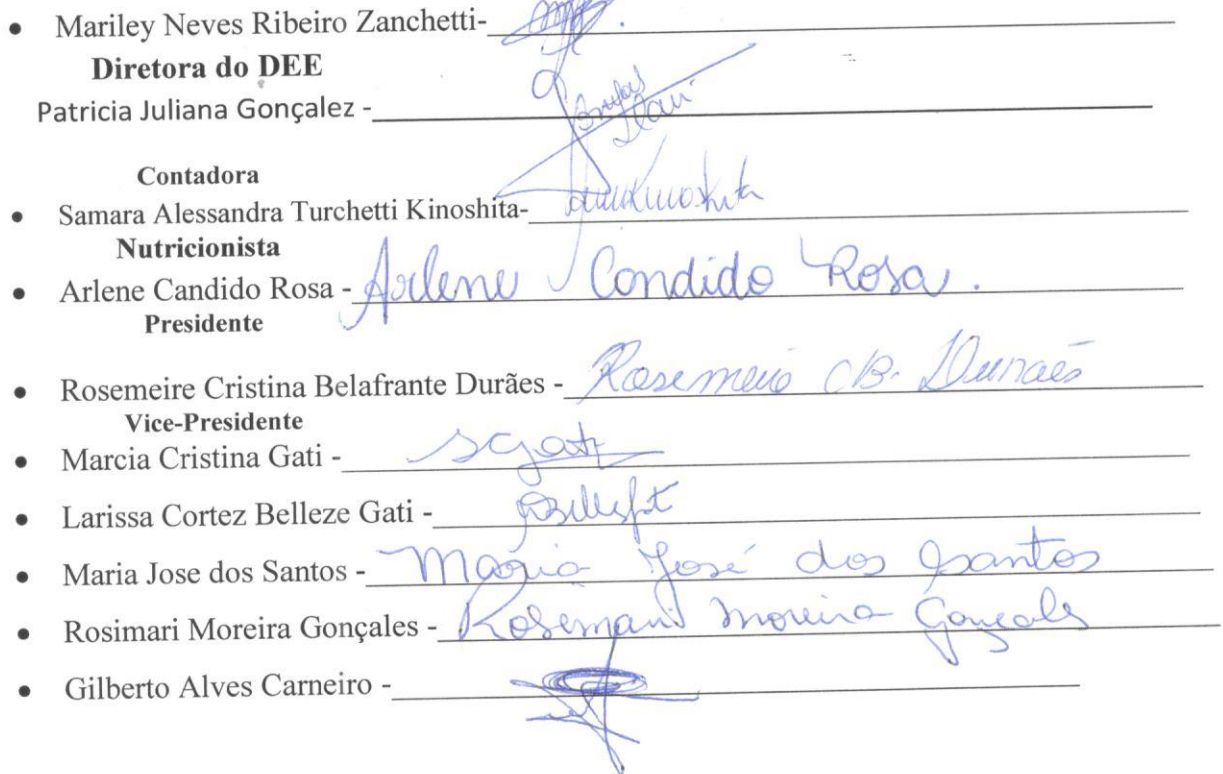 • Mariley Neves Ribeiro Zanchetti-
Diretora do DEE
Patricia Juliana Gonçalez -
Contadora
• Samara Alessandra Turchetti Kinoshita-
Nutricionista
• Arlene Candido Rosa - Arlene Candido Rosa.
Presidente
• Rosemeire Cristina Belafrante Durães - Rosemeire CB. Durães
Vice-Presidente
• Marcia Cristina Gati -
• Larissa Cortez Belleze Gati -
• Maria Jose dos Santos - Maria José dos Santos
• Rosimari Moreira Gonçales - Rosimari Moreira Gonçales
• Gilberto Alves Carneiro -